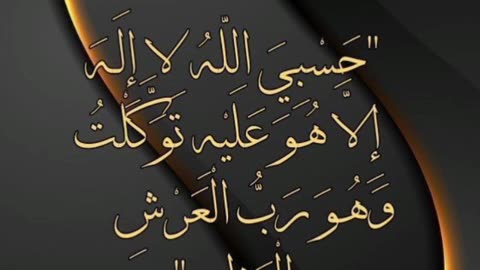 "حَسْبِيَ اللَّهُ لَا إِلَهَ
إِلَّا هُوَ عَلَيْهِ تَوَكَّلْتُ
وَهُوَ رَبُّ الْعَرْشِ